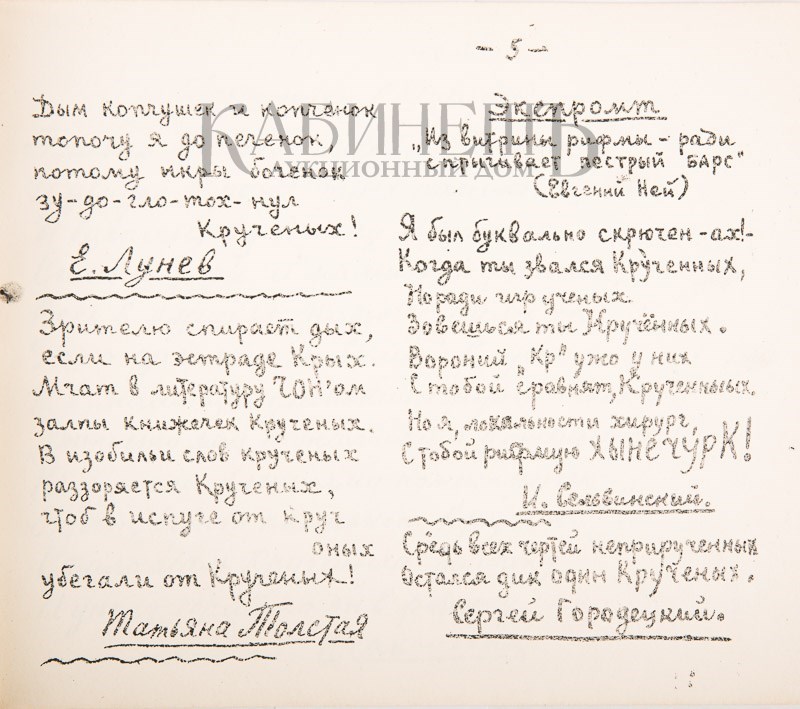 - 5 -
Дым копчушек и копченок
топочу я до печенок,
потому икры боченок
зу-до-гло-тох-нул
Крученых!
Е. Лунев
Зрителю спирает дых,
если на эстраде Крых.
Мчат в литературу ЧОН'ом
залпы книжечек Крученых.
В изобильи слов крученых
раззоряется Крученых,
чтоб в испуге от круч
оных
убегали от Крученых!
Татьяна Толстая
Экспромт
„Из витрины рифмы - ради
спрыгивает пестрый БАРС"
(Евгений Ней)
Я был буквально скрючен -ах!-
Когда ты звался Кручённых,
Но ради игр ученых
Зовешься ты Кручённых.
Вороний „Кр" ужо у них
С тобой сравнят, Крученныых.
Но я, локальности хирург,
С тобой рифмую ХЫНЕЧУРК!
И. Сельвинский.
Средь всех чертей неприрученных
Остался дик один Крученых.
Сергей Городецкий.
КАБИНЕТЪ
АУКЦИОННЫЙ ДОМ